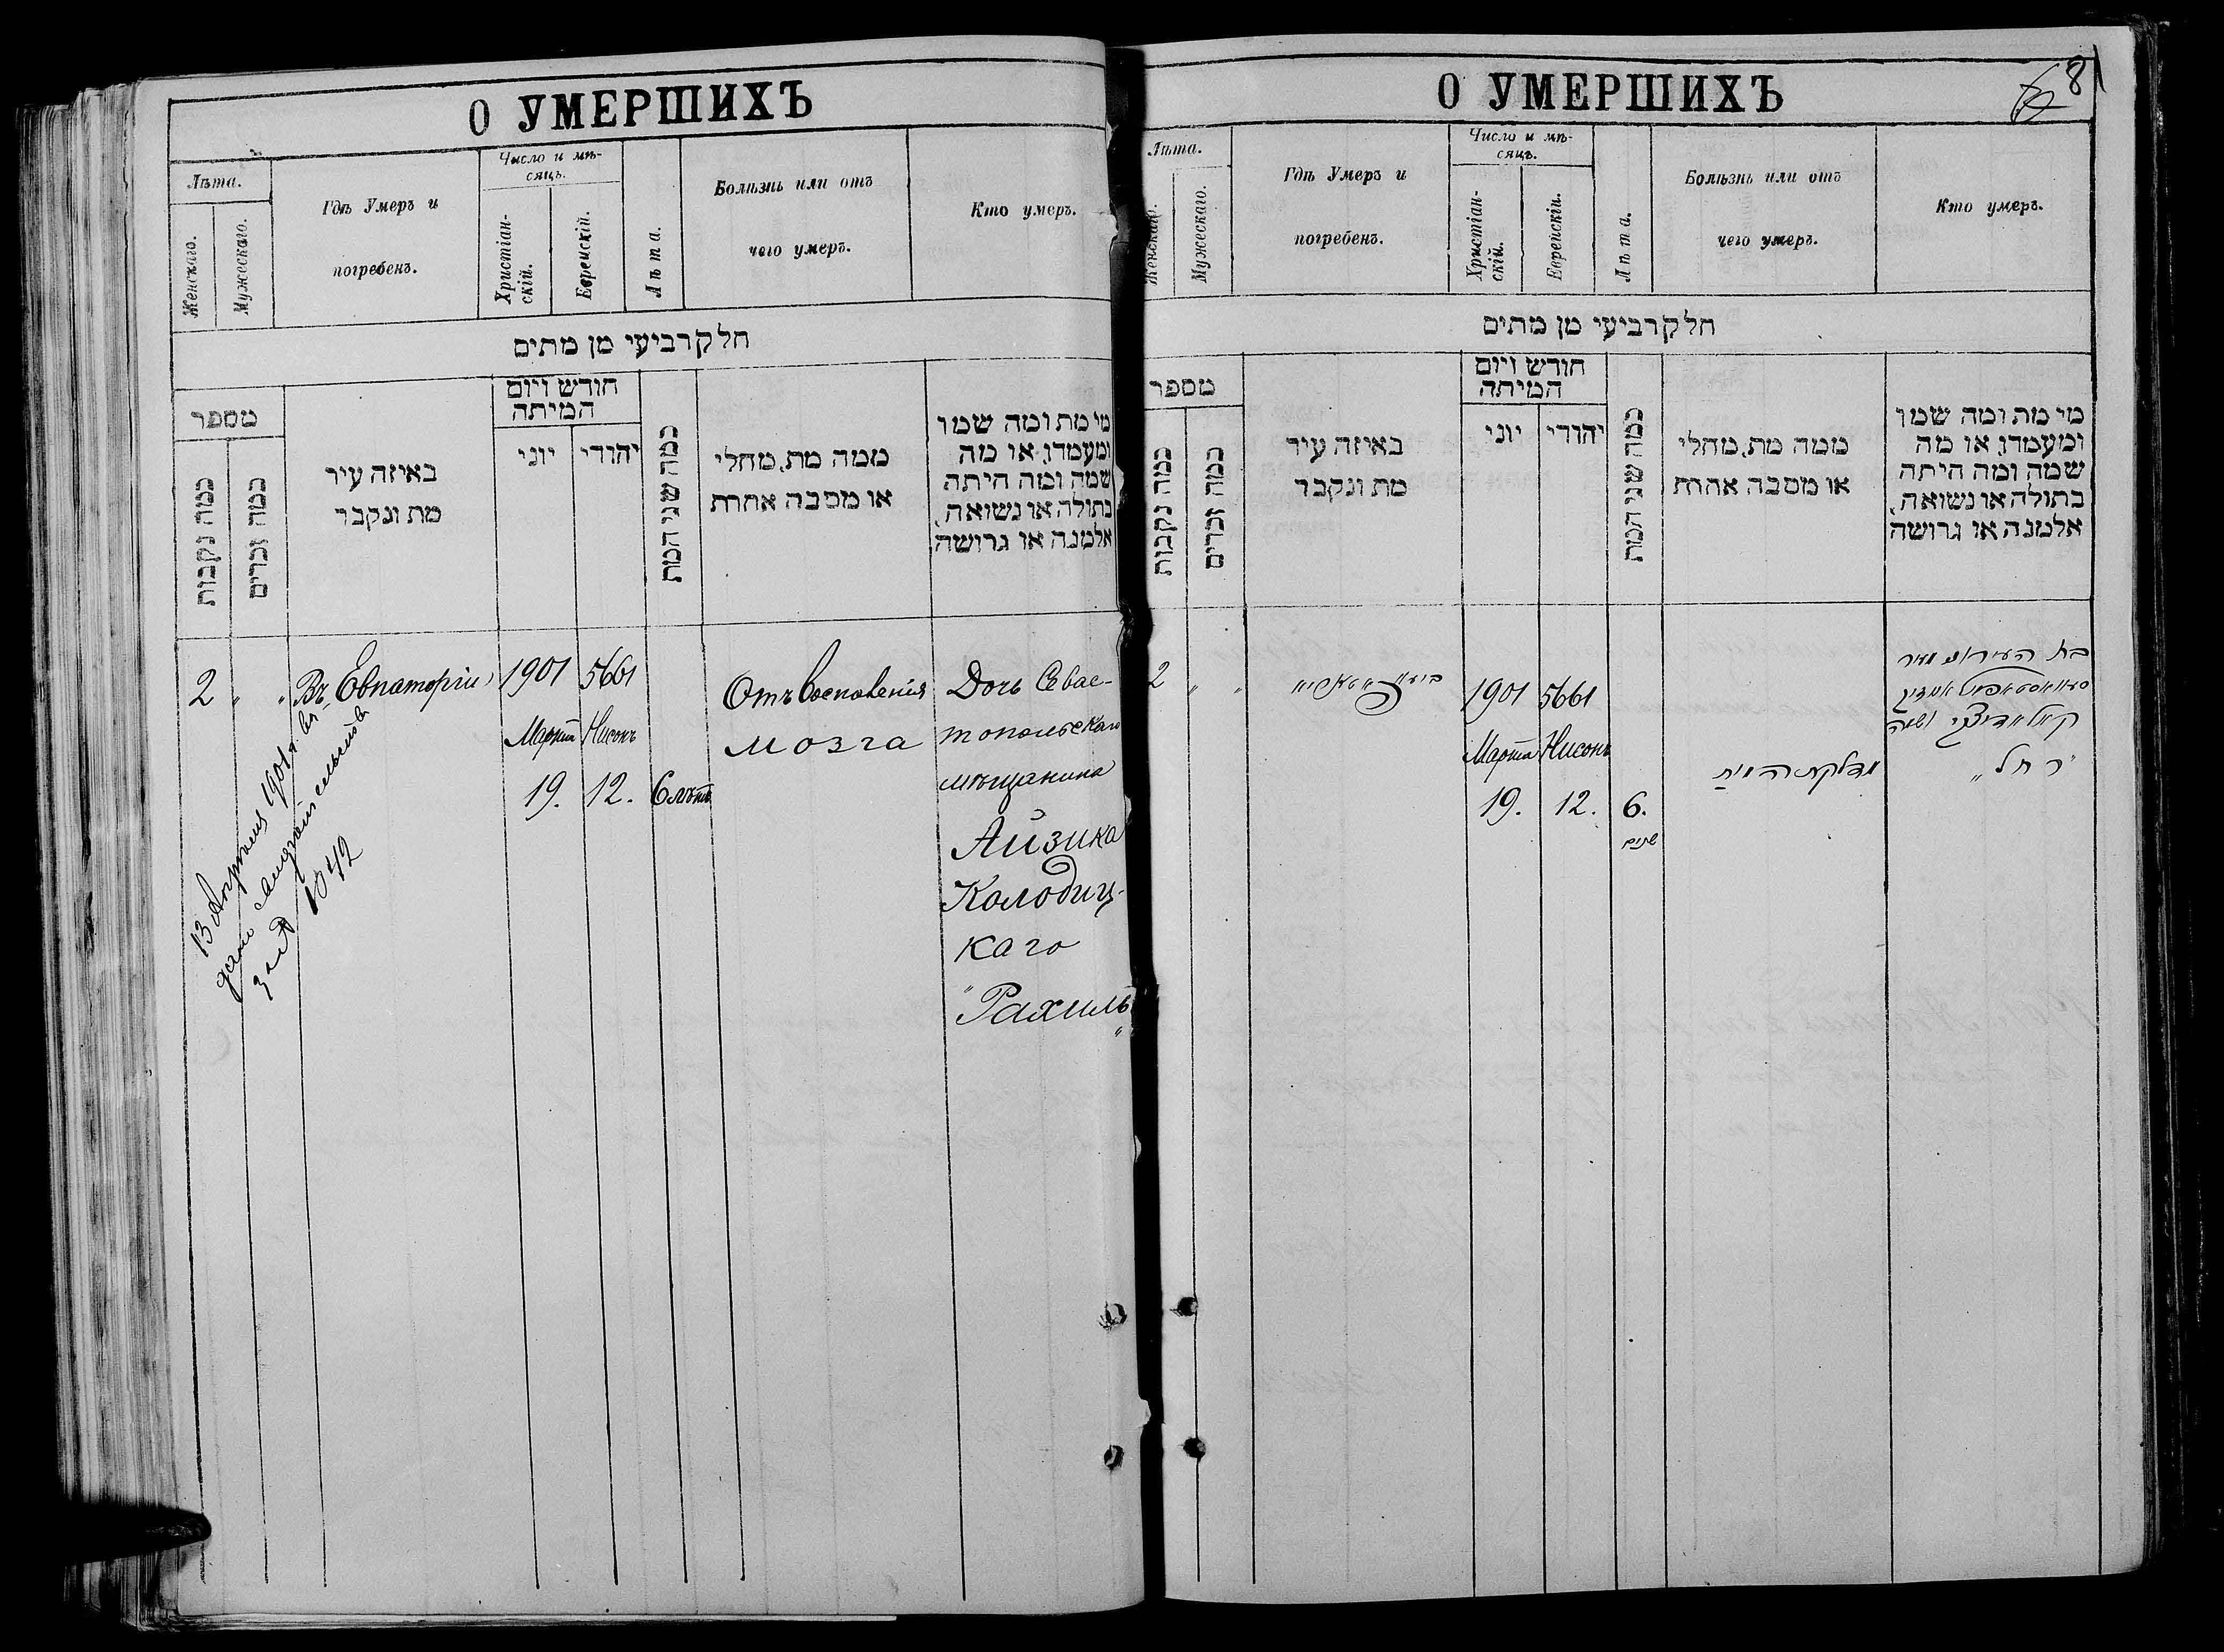 О УМЕРШИХЪ
Лѣта.
Женскаго.
Мужескаго.
Гдѣ Умеръ и
погребенъ.
Число и мѣ-
сяцъ.
Христіан-
скій.
Еврейскій.
Лѣта.
Болѣзнь или отъ
чего умеръ.
Кто умеръ.
חלק רביעי מן מתים
מספר
כמה נקבות
כמה זכרים
באיזה עיר
מת ונקבר
חודש ויום
המיתה
יוני
יהודי
כמה שני המת
ממה מת, מחלי
או מסבה אחרת
מי מת ומה שמו
ומעמדו, או מה
שמה ומה היתה
בתולה או נשואה,
אלמנה או גרושה
2 " "
Въ Евпаторіи
1901
Марта
19.
5661
Нисонъ
12.
6 лѣтъ
Отъ воспаленія
мозга
Дочь Севас-
топольскаго
мѣщанина
Айзика
Колодиц-
каго
"Рахиль"
13 Апрѣля 1901 г.
за № 1042
О УМЕРШИХЪ
8
Лѣта.
Женскаго.
Мужескаго.
Гдѣ Умеръ и
погребенъ.
Число и мѣ-
сяцъ.
Христіан-
скій.
Еврейскій.
Лѣта.
Болѣзнь или отъ
чего умеръ.
Кто умеръ.
חלק רביעי מן מתים
מספר
כמה נקבות
כמה זכרים
באיזה עיר
מת ונקבר
חודש ויום
המיתה
יוני
יהודי
כמה שני המת
ממה מת, מחלי
או מסבה אחרת
מי מת ומה שמו
ומעמדו, או מה
שמה ומה היתה
בתולה או נשואה,
אלמנה או גרושה
2 " "
1901
Марта
19.
5661
Нисонъ
12.
6.
שנים
מדלקת המוח
בת העירוני
סעוואסטאפול
ושמה
"רחל"